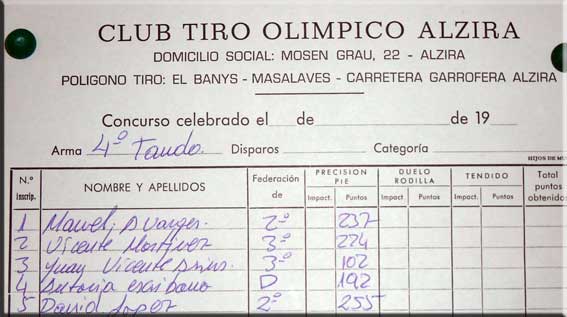 CLUB TIRO OLIMPICO ALZIRA
DOMICILIO SOCIAL: MOSEN GRAU, 22 - ALZIRA
POLIGONO TIRO: EL BANYS - MASALAVES - CARRETERA GARROFERA ALZIRA
Concurso celebrado el de de 19
Arma 4º Tanda. Disparos Categoría
HIJOS DE
N.º inscrip. NOMBRE Y APELLIDOS Federación de PRECISION PIE DUELO RODILLA TENDIDO Total puntos obtenidos
Impact. Puntos Impact. Puntos Impact. Puntos
1 Manuel 2º 237
2 Vicente Martinez 3º 224
3 Juan Vicente 3º 102
4 Antonia escribano D 192
5 David Lopez 2º 255